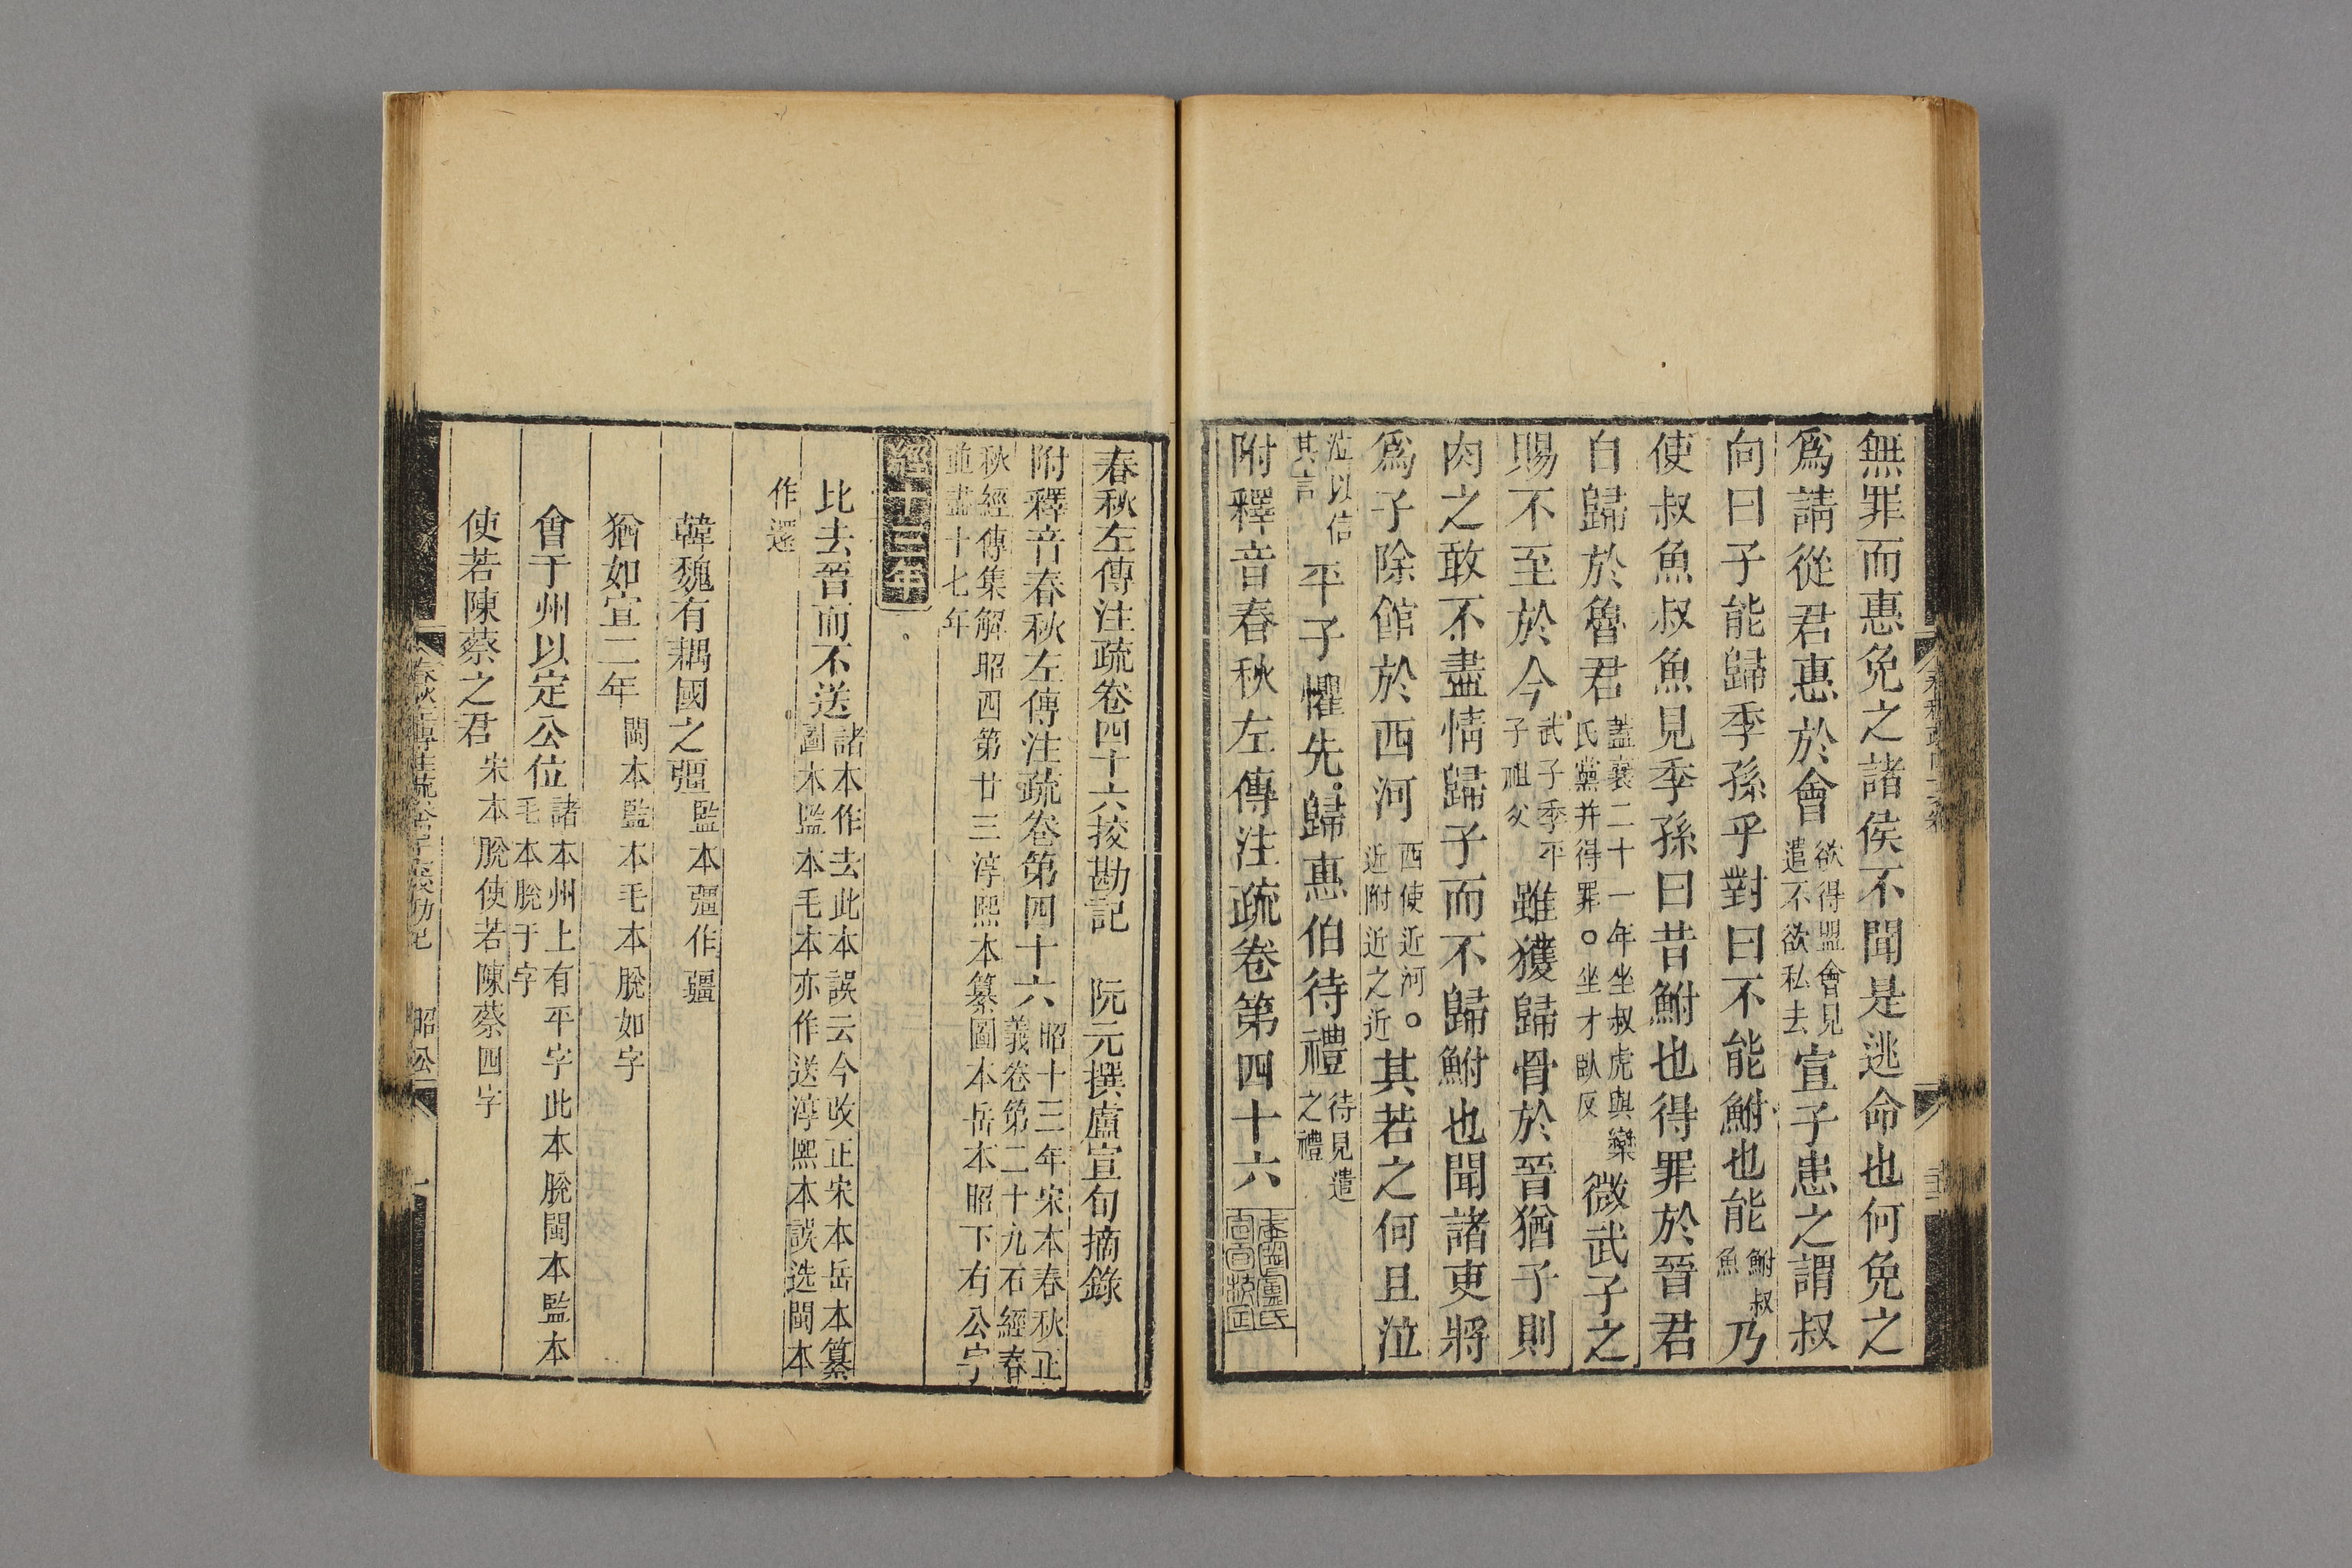 無罪而惠免之諸侯不聞是逃命也何免之
爲請從君惠於會欲得盟會見遣不欲私去宣子患之謂叔
向曰子能歸季孫乎對曰不能鮒也能鮒叔魚乃
使叔魚叔魚見季孫曰昔鮒也得罪於晉君
自歸於魯君蓋襄二十一年坐叔虎與欒氏黨并得罪○坐才臥反微武子之
賜不至於今武子季平子祖父雖獲歸骨於晉猶子則
肉之敢不盡情歸子而不歸鮒也聞諸吏將
爲子除館於西河西使近河○近附近之近其若之何且泣
泣以信其言平子懼先歸惠伯待禮待見遣之禮
附釋音春秋左傳注疏卷第四十六
春秋左傳注疏卷四十六挍勘記 阮元撰盧宣旬摘錄
附釋音春秋左傳注疏卷第四十六昭十三年宋本春秋正義卷第二十九石經春
秋經傳集解昭四第廿三淳熙本纂圖本岳本昭下有公字並盡十七年
經十三年
比去晉而不送諸本作去此本誤云今改正宋本岳本纂圖本監本毛本亦作送淳熙本誤选閩本
作還
韓魏有耦國之彊監本彊作疆
猶如宣二年閩本監本毛本脫如字
會于州以定公位諸本州上有平字此本脫閩本監本毛本脫于字
使若陳蔡之君宋本脫使若陳蔡四字